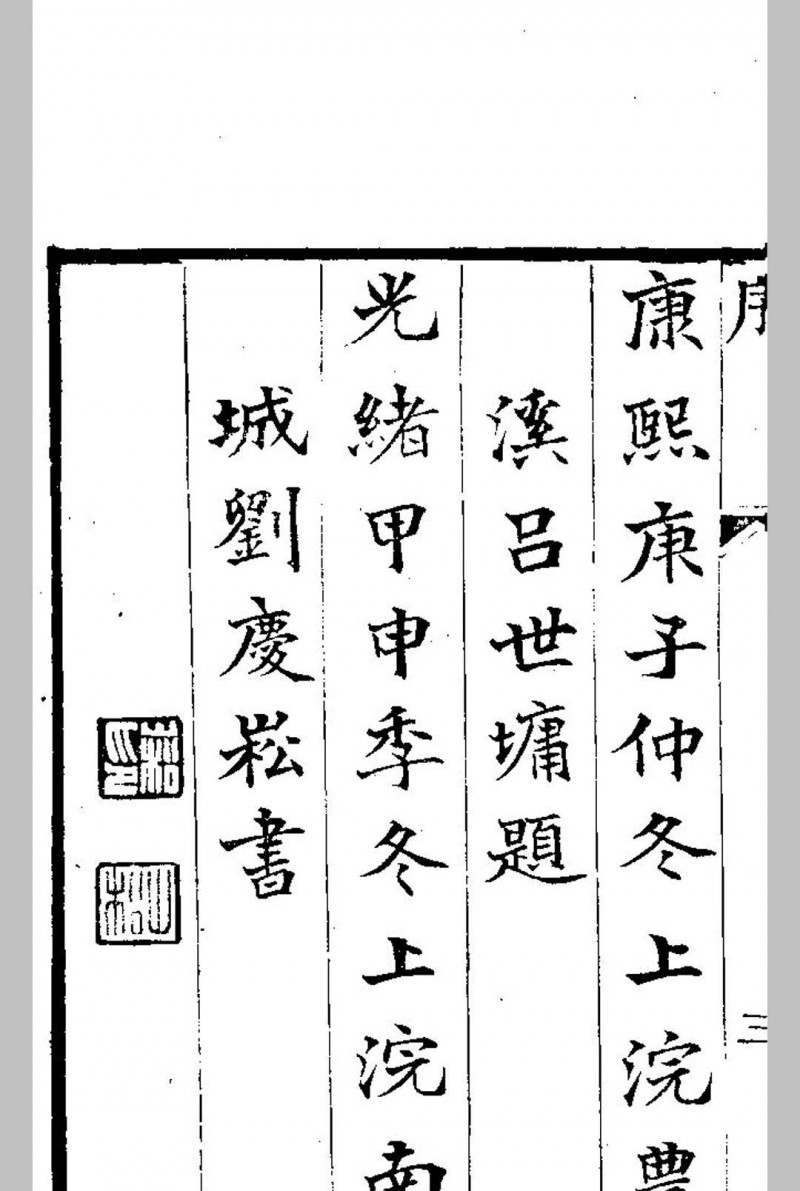 序
三
康熙庚子仲冬上浣豊
溪呂世墉題
光緒甲申季冬上浣南
城劉慶崧書